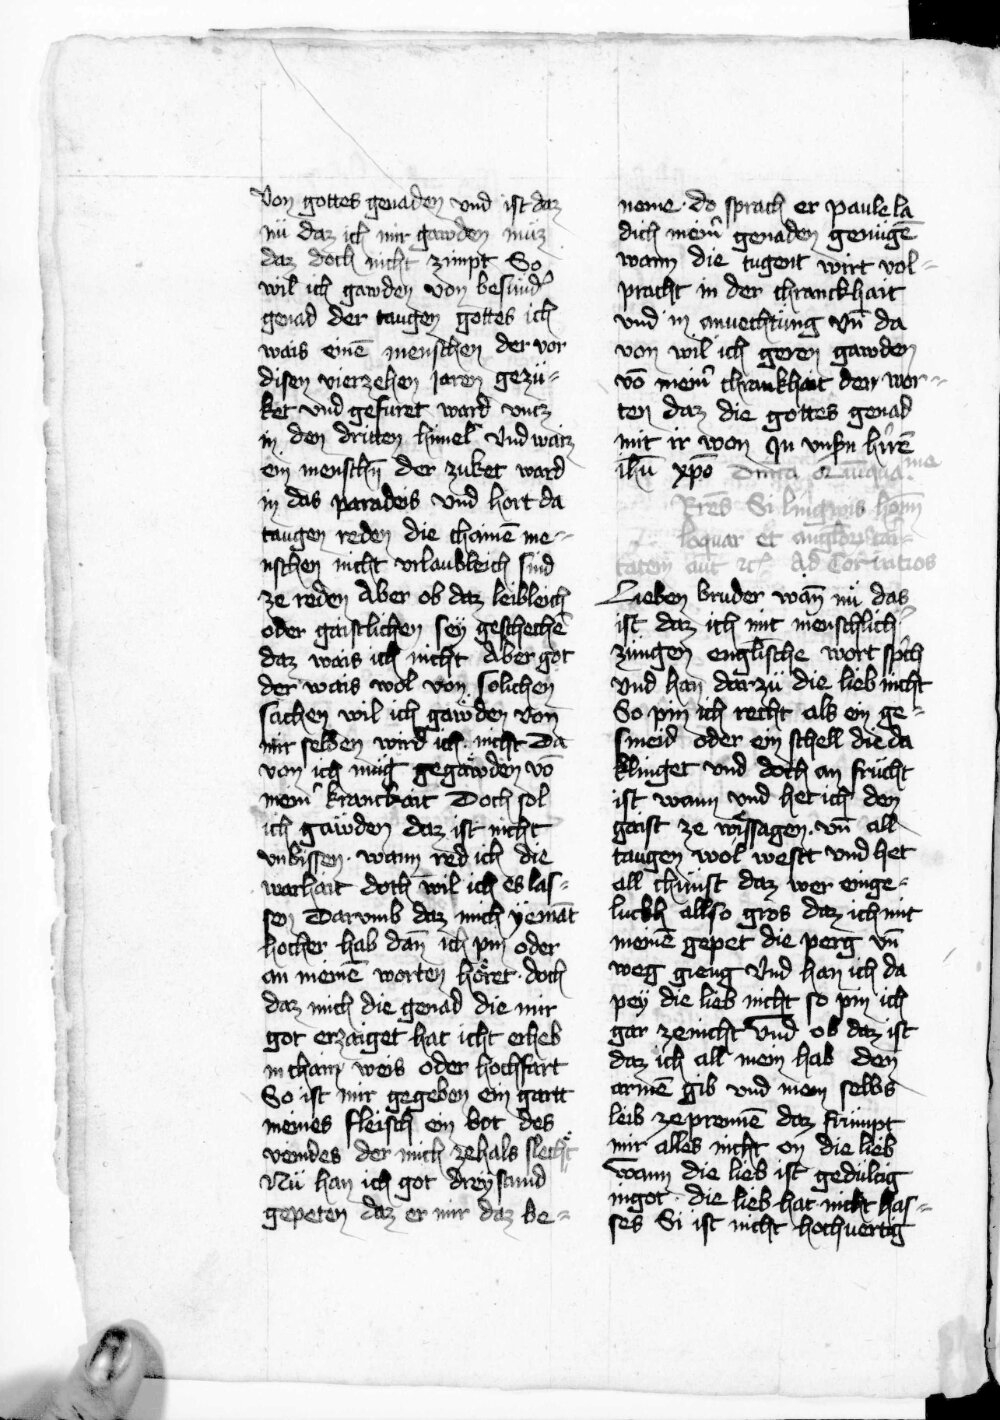 Von gottes genaden vnd ist daz
nü daz ich mir gawden müz
daz doch nicht zimpt So
wil ich gawden von besund͛
genad der taugen gottes ich
wais einē menschen der vor
disen vierzehen jaren gezü-
ket vnd gefüret ward vncz
in den dritten himel Vnd waiz
ein menschn̄ der zuket ward
in das paradeis vnd hort da
taugen reden die chainē me-
nschen nicht vrlaubleich sind
ze reden Aber ob daz leibleich
oder gaistlichen seÿ geschechē
daz wais ich nicht Aber got
der wais wol von solichen
sachen wil ich gawden von
mir selben wird ich nicht Da
von ich müg gegawden vō
mein͛ kranckait Doch sol
ich gawden daz ist nicht
vnbissen · wann red ich die
warhait doch wil ich es las-
sen Darvmb daz mich ÿemāt
hocher hab dan̄ ich pin oder
an meinē worten höret · doch
daz mich die genad die mir
got erzaiget hat icht erheb
in chain weis oder hochfart
So ist mir gegeben ein gartt
meines fleisch ein bot des
veindes der mich ze hals slecht
Nü han ich got dreÿ stund
gepeten daz er mir daz be-
neme · do sprach er paule la
dich mein͛ genaden genügē
wann die tugent wirt vol-
pracht in der chranckhait
vnd in anvechtüng vn̄ da
von wil ich geren gawden
vō mein͛ chrankhait den wor-
ten daz die gottes genad
mit ir won In vnsn͛ h͛rē
ihū xp̄o Dn̄ica
Fr̄es Si lingwis hom̄
loquar et
tatem aut̄ Ad Corintios
Lieben bruder wan̄ nü das
ist daz ich mit menschlich͛
züngen englische wort sp͛ch
Vnd han darzü die lieb nicht
So pin ich recht als ein ge-
smeid oder ein schell die da
klinget vnd doch an frücht
ist wann vnd het ich den
gaist ze wissagen · vn̄ all
taugen wol westt vnd het
all chünst daz wer einge-
luckh allso gros daz ich mit
meinē gepet die perg vn̄
weg gieng Vnd han ich da
peÿ die lieb nicht so pin ich
gar ze nicht Vnd ob daz ist
daz ich all mein hab den
armē gib vnd mein selbs
leib ze prennē daz frümpt
mir alles nicht on die lieb
wann die lieb ist gedültig
in got · die lieb hat nicht has-
ses Si ist nicht hochvertig